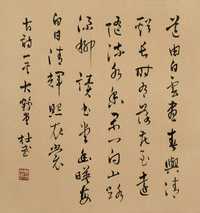 道由白雲盡春與清
谿長時有落花至遠
隨流水香閑門向山路
深柳讀書堂幽映每
白日清輝照衣裳
古詩一首